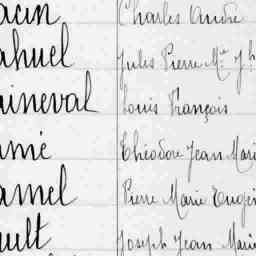 acin Charles André
ahuel Jules Pierre Mie Jh
aineval Louis François
amé Théodore Jean Mari
amel Pierre Marie Eugèn
ault Joseph Jean Marie